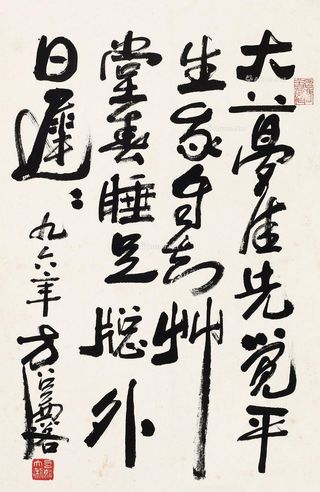 大夢誰先覺平
生我自知艸
堂春睡足牕外
日遲〻
九六年
方召麐